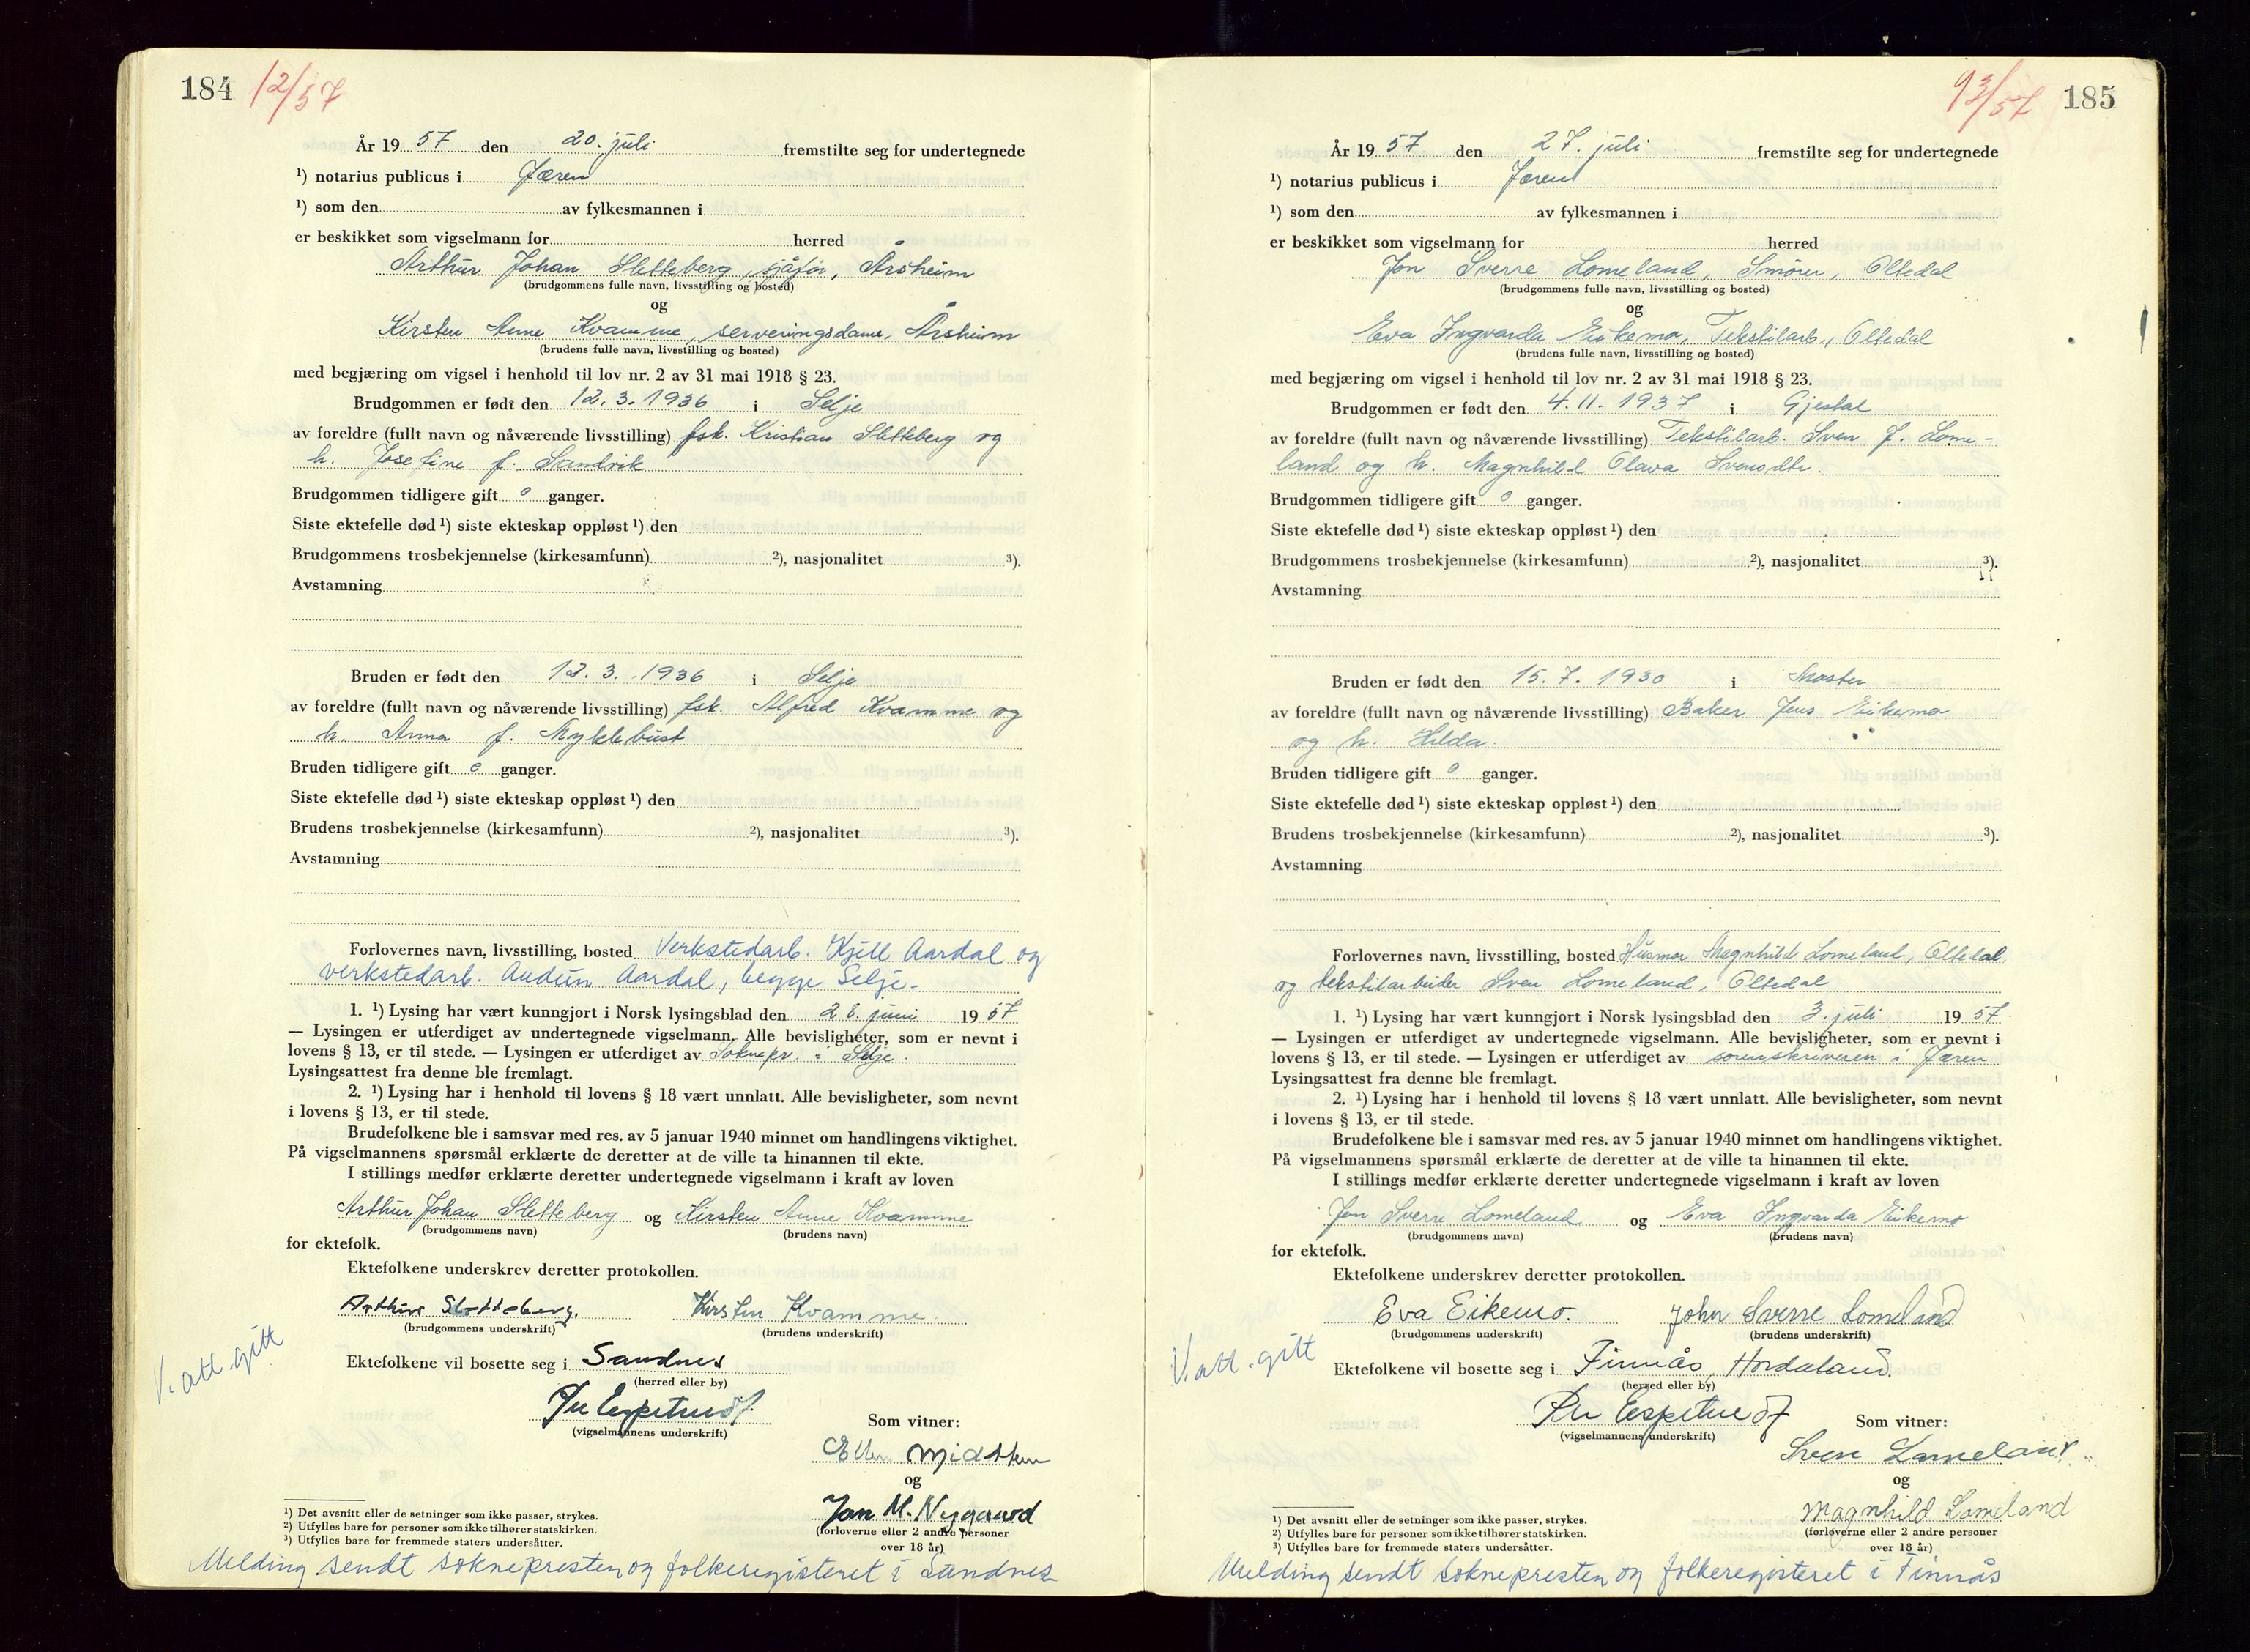 184 12/57
År 19 57 den 20. juli fremstilte seg for undertegnede
¹) notarius publicus i Jæren
¹) som den av fylkesmannen i
er beskikket som vigselmann for herred
Arthur Johan Sletteberg, sjåfør, Årsheim
(brudgommens fulle navn, livsstilling og bosted)
og
Kirsten Anne Kvamme, serveringsdame, Årsheim
(brudens fulle navn, livsstilling og bosted)
med begjæring om vigsel i henhold til lov nr. 2 av 31 mai 1918 § 23.
Brudgommen er født den 12. 3. 1936 i Selje
av foreldre (fullt navn og nåværende livsstilling) fsk. Kristian Sletteberg og
h. Josefine f. Sandvik
Brudgommen tidligere gift 0 ganger.
Siste ektefelle død ¹) siste ekteskap oppløst ¹) den
Brudgommens trosbekjennelse (kirkesamfunn) ²), nasjonalitet ³).
Avstamning
Bruden er født den 12. 3. 1936 i Selje
av foreldre (fullt navn og nåværende livsstilling) fsk. Alfred Kvamme og
h. Anna f. Myklebust
Bruden tidligere gift 0 ganger.
Siste ektefelle død ¹) siste ekteskap oppløst ¹) den
Brudens trosbekjennelse (kirkesamfunn) ²), nasjonalitet ³).
Avstamning
Forlovernes navn, livsstilling, bosted Verkstedarb. Kjell Aardal og
verkstedarb. Audun Aardal, begge Selje.
1. ¹) Lysing har vært kunngjort i Norsk lysingsblad den 26. juni 19 57
— Lysingen er utferdiget av undertegnede vigselmann. Alle bevisligheter, som er nevnt i
lovens § 13, er til stede. — Lysingen er utferdiget av Soknepr. i Selje.
Lysingsattest fra denne ble fremlagt.
2. ¹) Lysing har i henhold til lovens § 18 vært unnlatt. Alle bevisligheter, som nevnt
i lovens § 13, er til stede.
Brudefolkene ble i samsvar med res. av 5 januar 1940 minnet om handlingens viktighet.
På vigselmannens spørsmål erklærte de deretter at de ville ta hinannen til ekte.
I stillings medfør erklærte deretter undertegnede vigselmann i kraft av loven
Arthur Johan Sletteberg og Kirsten Anne Kvamme
(brudgommens navn) (brudens navn)
for ektefolk.
Ektefolkene underskrev deretter protokollen.
Arthur Sletteberg. Kirsten Kvamme.
(brudgommens underskrift) (brudens underskrift)
V. att. gitt
Ektefolkene vil bosette seg i Sandnes
(herred eller by)
(vigselmannens underskrift)
Som vitner:
Ellen
og
Jan M. Nygaard
(forloverne eller 2 andre personer
over 18 år)
¹) Det avsnitt eller de setninger som ikke passer, strykes.
²) Utfylles bare for personer som ikke tilhører statskirken.
³) Utfylles bare for fremmede staters undersåtter.
Melding sendt soknepresten og folkeregisteret i Sandnes
93/57 185
År 19 57 den 27. juli fremstilte seg for undertegnede
¹) notarius publicus i Jæren
¹) som den av fylkesmannen i
er beskikket som vigselmann for herred
Jon Sverre Lomeland, Smører, Oltedal
(brudgommens fulle navn, livsstilling og bosted)
og
Eva Ingvarda Eikemo, Tekstilarb., Oltedal
(brudens fulle navn, livsstilling og bosted)
med begjæring om vigsel i henhold til lov nr. 2 av 31 mai 1918 § 23.
Brudgommen er født den 4. 11. 1937 i Gjestal
av foreldre (fullt navn og nåværende livsstilling) Tekstilarb. Sven J. Lome-
land og h. Magnhild Olava Svensdtr.
Brudgommen tidligere gift 0 ganger.
Siste ektefelle død ¹) siste ekteskap oppløst ¹) den
Brudgommens trosbekjennelse (kirkesamfunn) ²), nasjonalitet ³).
Avstamning
Bruden er født den 15. 7. 1930 i Moster
av foreldre (fullt navn og nåværende livsstilling) Baker Jens Eikemo
og h. Hilda.
Bruden tidligere gift 0 ganger.
Siste ektefelle død ¹) siste ekteskap oppløst ¹) den
Brudens trosbekjennelse (kirkesamfunn) ²), nasjonalitet ³).
Avstamning
Forlovernes navn, livsstilling, bosted Husmor Magnhild Lomeland, Oltedal,
og tekstilarbeider Sven Lomeland, Oltedal
1. ¹) Lysing har vært kunngjort i Norsk lysingsblad den 3. juli 19 57.
— Lysingen er utferdiget av undertegnede vigselmann. Alle bevisligheter, som er nevnt i
lovens § 13, er til stede. — Lysingen er utferdiget av sorenskriveren i Jæren
Lysingsattest fra denne ble fremlagt.
2. ¹) Lysing har i henhold til lovens § 18 vært unnlatt. Alle bevisligheter, som nevnt
i lovens § 13, er til stede.
Brudefolkene ble i samsvar med res. av 5 januar 1940 minnet om handlingens viktighet.
På vigselmannens spørsmål erklærte de deretter at de ville ta hinannen til ekte.
I stillings medfør erklærte deretter undertegnede vigselmann i kraft av loven
Jon Sverre Lomeland og Eva Ingvarda Eikemo
(brudgommens navn) (brudens navn)
for ektefolk.
Ektefolkene underskrev deretter protokollen.
Eva Eikemo. John Sverre Lomeland
(brudgommens underskrift) (brudens underskrift)
V. att. gitt
Ektefolkene vil bosette seg i Finnås, Hordaland.
(herred eller by)
(vigselmannens underskrift)
Som vitner:
Sven Lomeland
og
Magnhild Lomeland
(forloverne eller 2 andre personer
over 18 år)
¹) Det avsnitt eller de setninger som ikke passer, strykes.
²) Utfylles bare for personer som ikke tilhører statskirken.
³) Utfylles bare for fremmede staters undersåtter.
Melding sendt soknepresten og folkeregisteret i Finnås